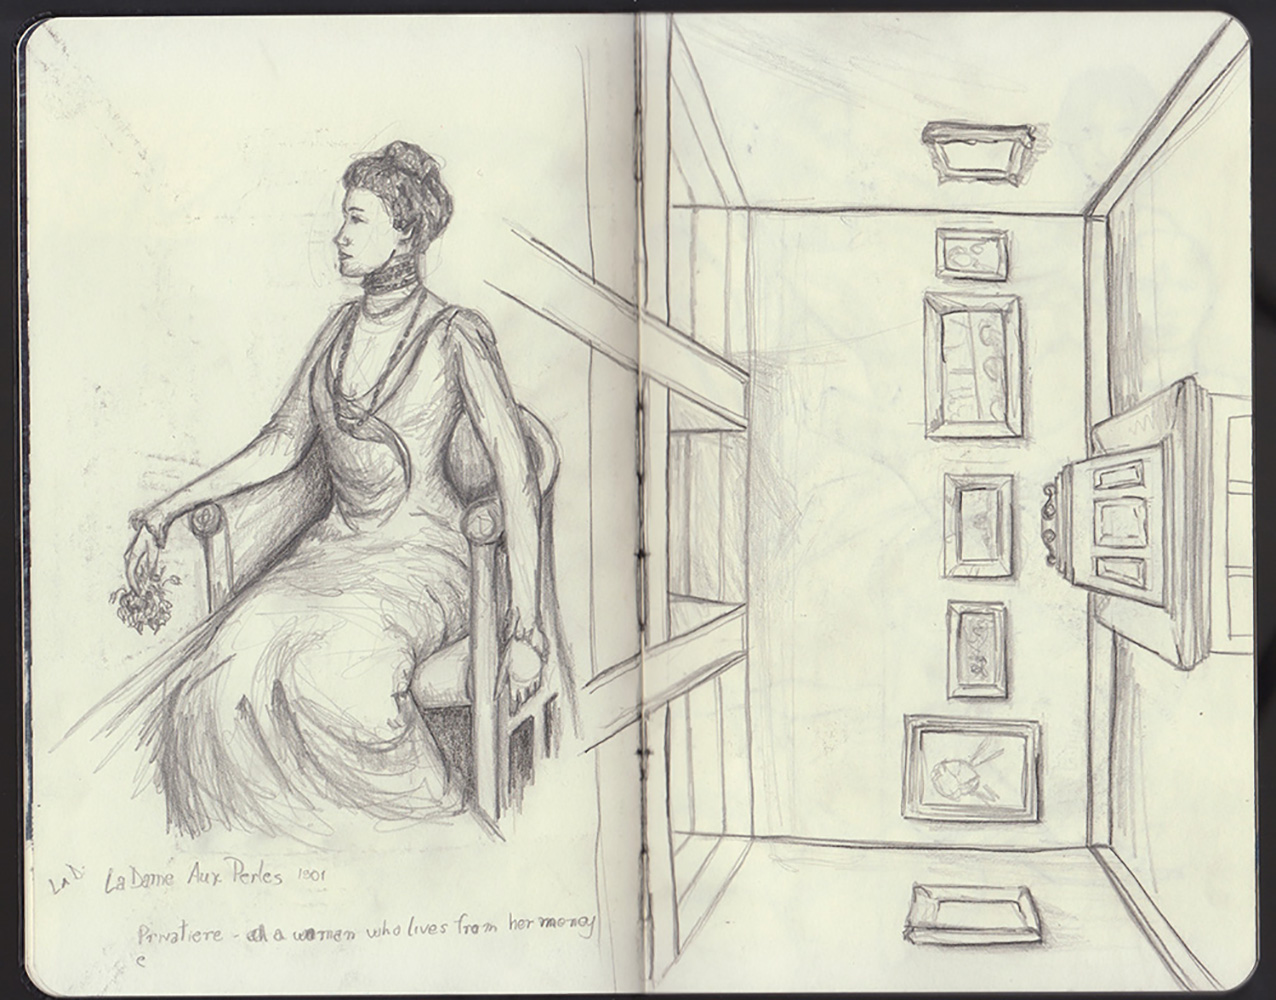 LaD
La Dame Aux Perles 1901
Privatiere - a woman who lives from her money
e